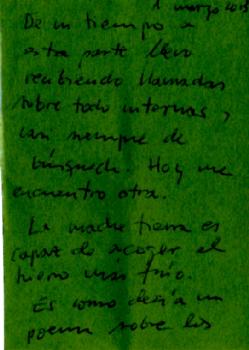 1 marzo 2013
De un tiempo a
esta parte llevo
recibiendo llamadas
sobre todo internas,
van siempre de
búsqueda. Hoy me
encuentro otra.
La madre tierra es
capaz de acoger el
hierro más frío.
Es como decía un
poema sobre los